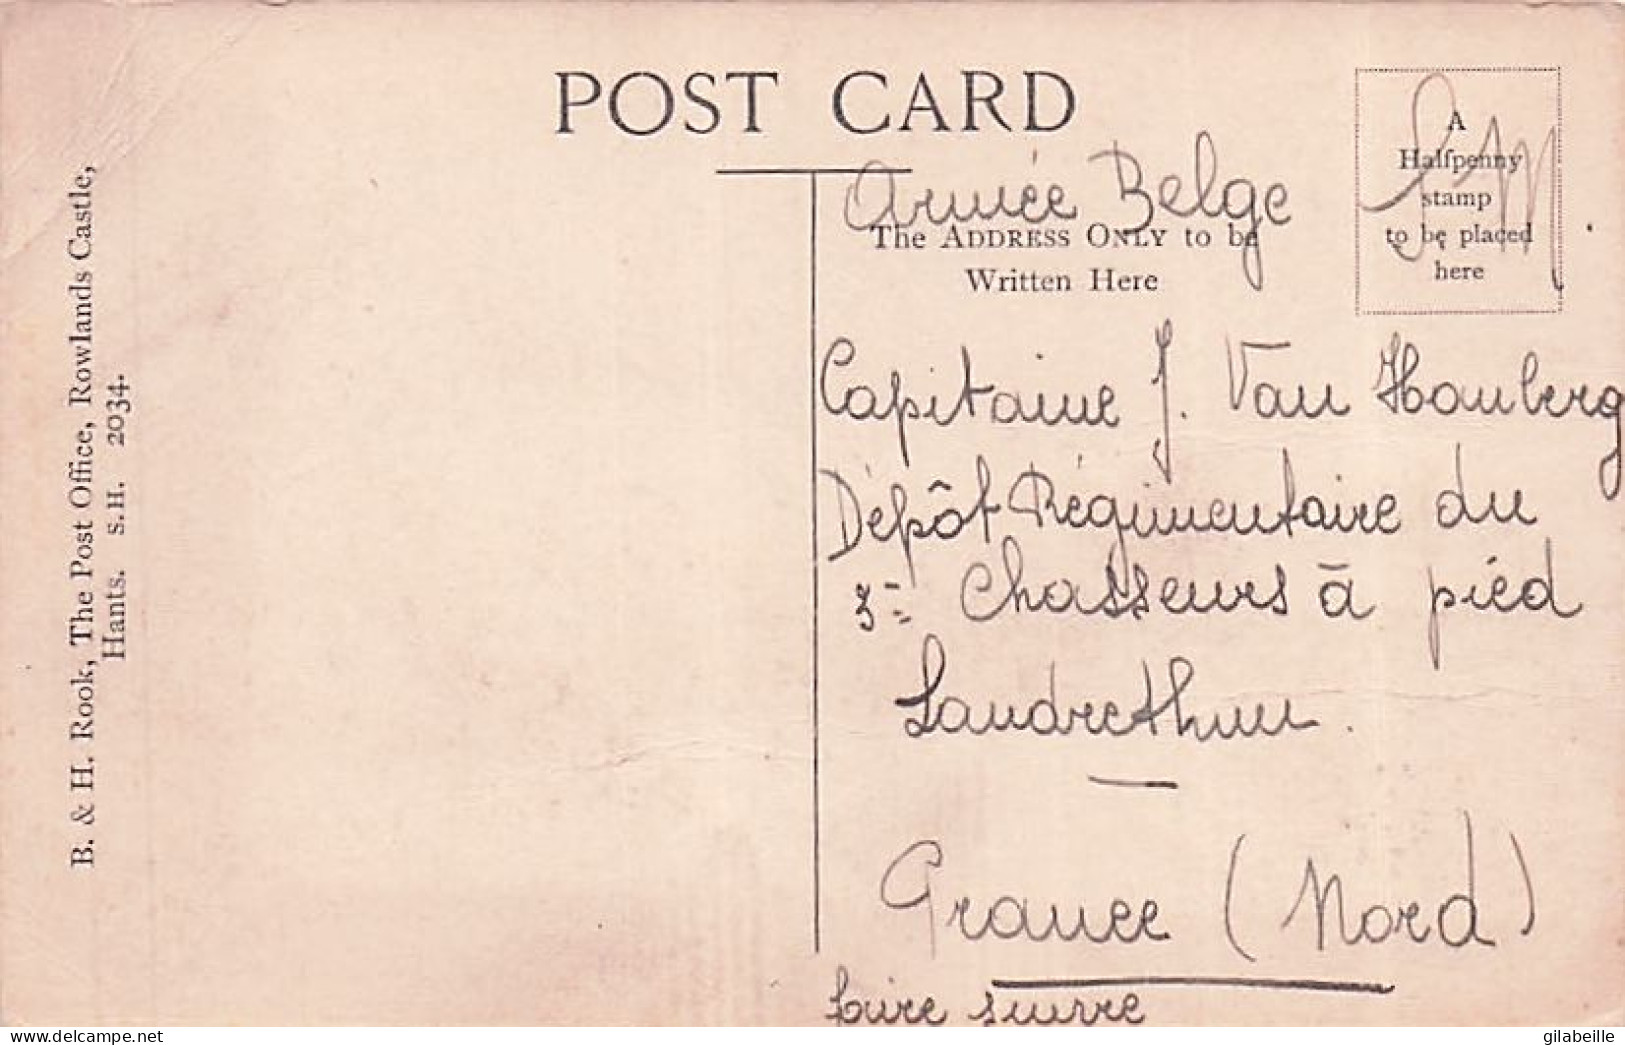 POST CARD
A
Halfpenny
stamp
to be placed
here
S M.
Armée Belge
The ADDRESS ONLY to be
Written Here
Capitaine J. Van Hamberg
Dépôt Régimentaire du
3e Chasseurs à pied
Landrethun.
France (Nord)
faire suivre
B. & H. Rook, The Post Office, Rowlands Castle,
Hants. S.H. 2034.
www.delcampe.net
gilabeille